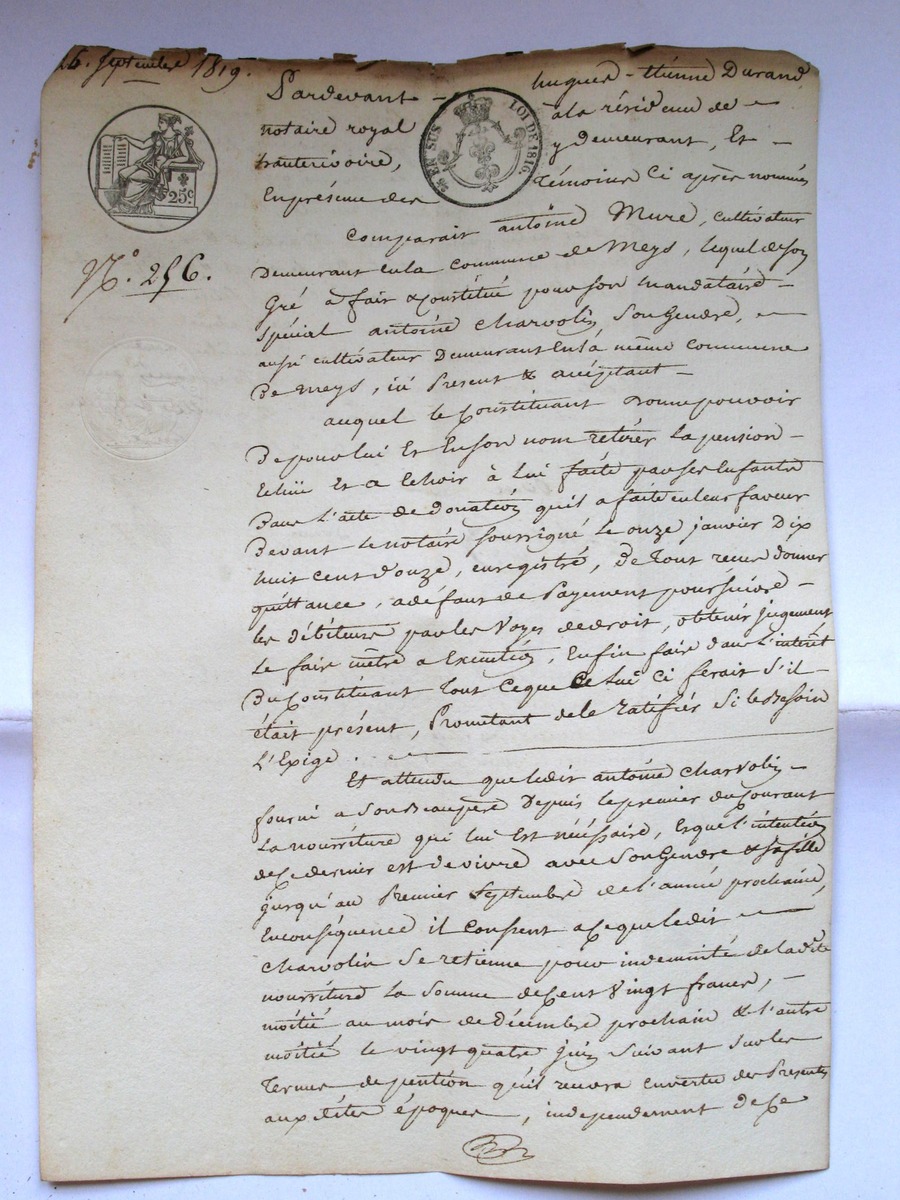 26. Septembre 1819.
Pardevant - hugues - étienne Durand
notaire royal à la résidence de
hauterivoire, y demeurant, Et -
En présence des témoins Ci après nommés
EN SUS LOI DE 1816.
25c.
N.° 256.
Comparait antoine Mure, cultivateur
Demeurant en la commune de Meys, lequel de son
Gré a fait & Constitué pour son mandataire -
Spécial antoine Charvolin, Son Gendre,
aussi cultivateur Demeurant en la même commune
De meys, ici Present & acceptant -
auquel le Constituant Donne pouvoir
De pour lui Et En son nom retirer la pension -
Echüe Et a Echoir à Lui faite par ses Enfants
Dans L'acte de Donation qu'il a faite en leur faveur
Devant le notaire soussigné le onze janvier Dix
huit cent douze, enregistré, De tout recu donner
quittance, a défaut de Payement poursuivre -
les débiteurs par les Voyes de droit, obtenir jugement
Le faire mêtre a Execution, Enfin faire dans L'intérêt
Du Constituant Tout Ceque Celui Ci ferait s'il
était présent, Promettant de le ratifier Si le Besoin
L'Exige.
Et attendu que ledit antoine Charvolin -
fourni a Son Beaupère Depuis le premier du Courant
La nourriture qui lui Est nécéssaire, Et que l'intention
de Ce dernier est de vivre avec Son Gendre & sa fille
jusqu'au Premier Septembre de l'année prochaine,
En conséquence il Consent a Ce que ledit
Charvolin Se retienne pour indemnité de la dte
nourriture La Somme de Cent Vingt francs, -
moitié au mois de Décembre prochain & l'autre
moitié le vingt quatre juin Suivant Sur les
Termes de pention qu'il recevra en vertu des Présentes
aux dites époques, independement de Ce